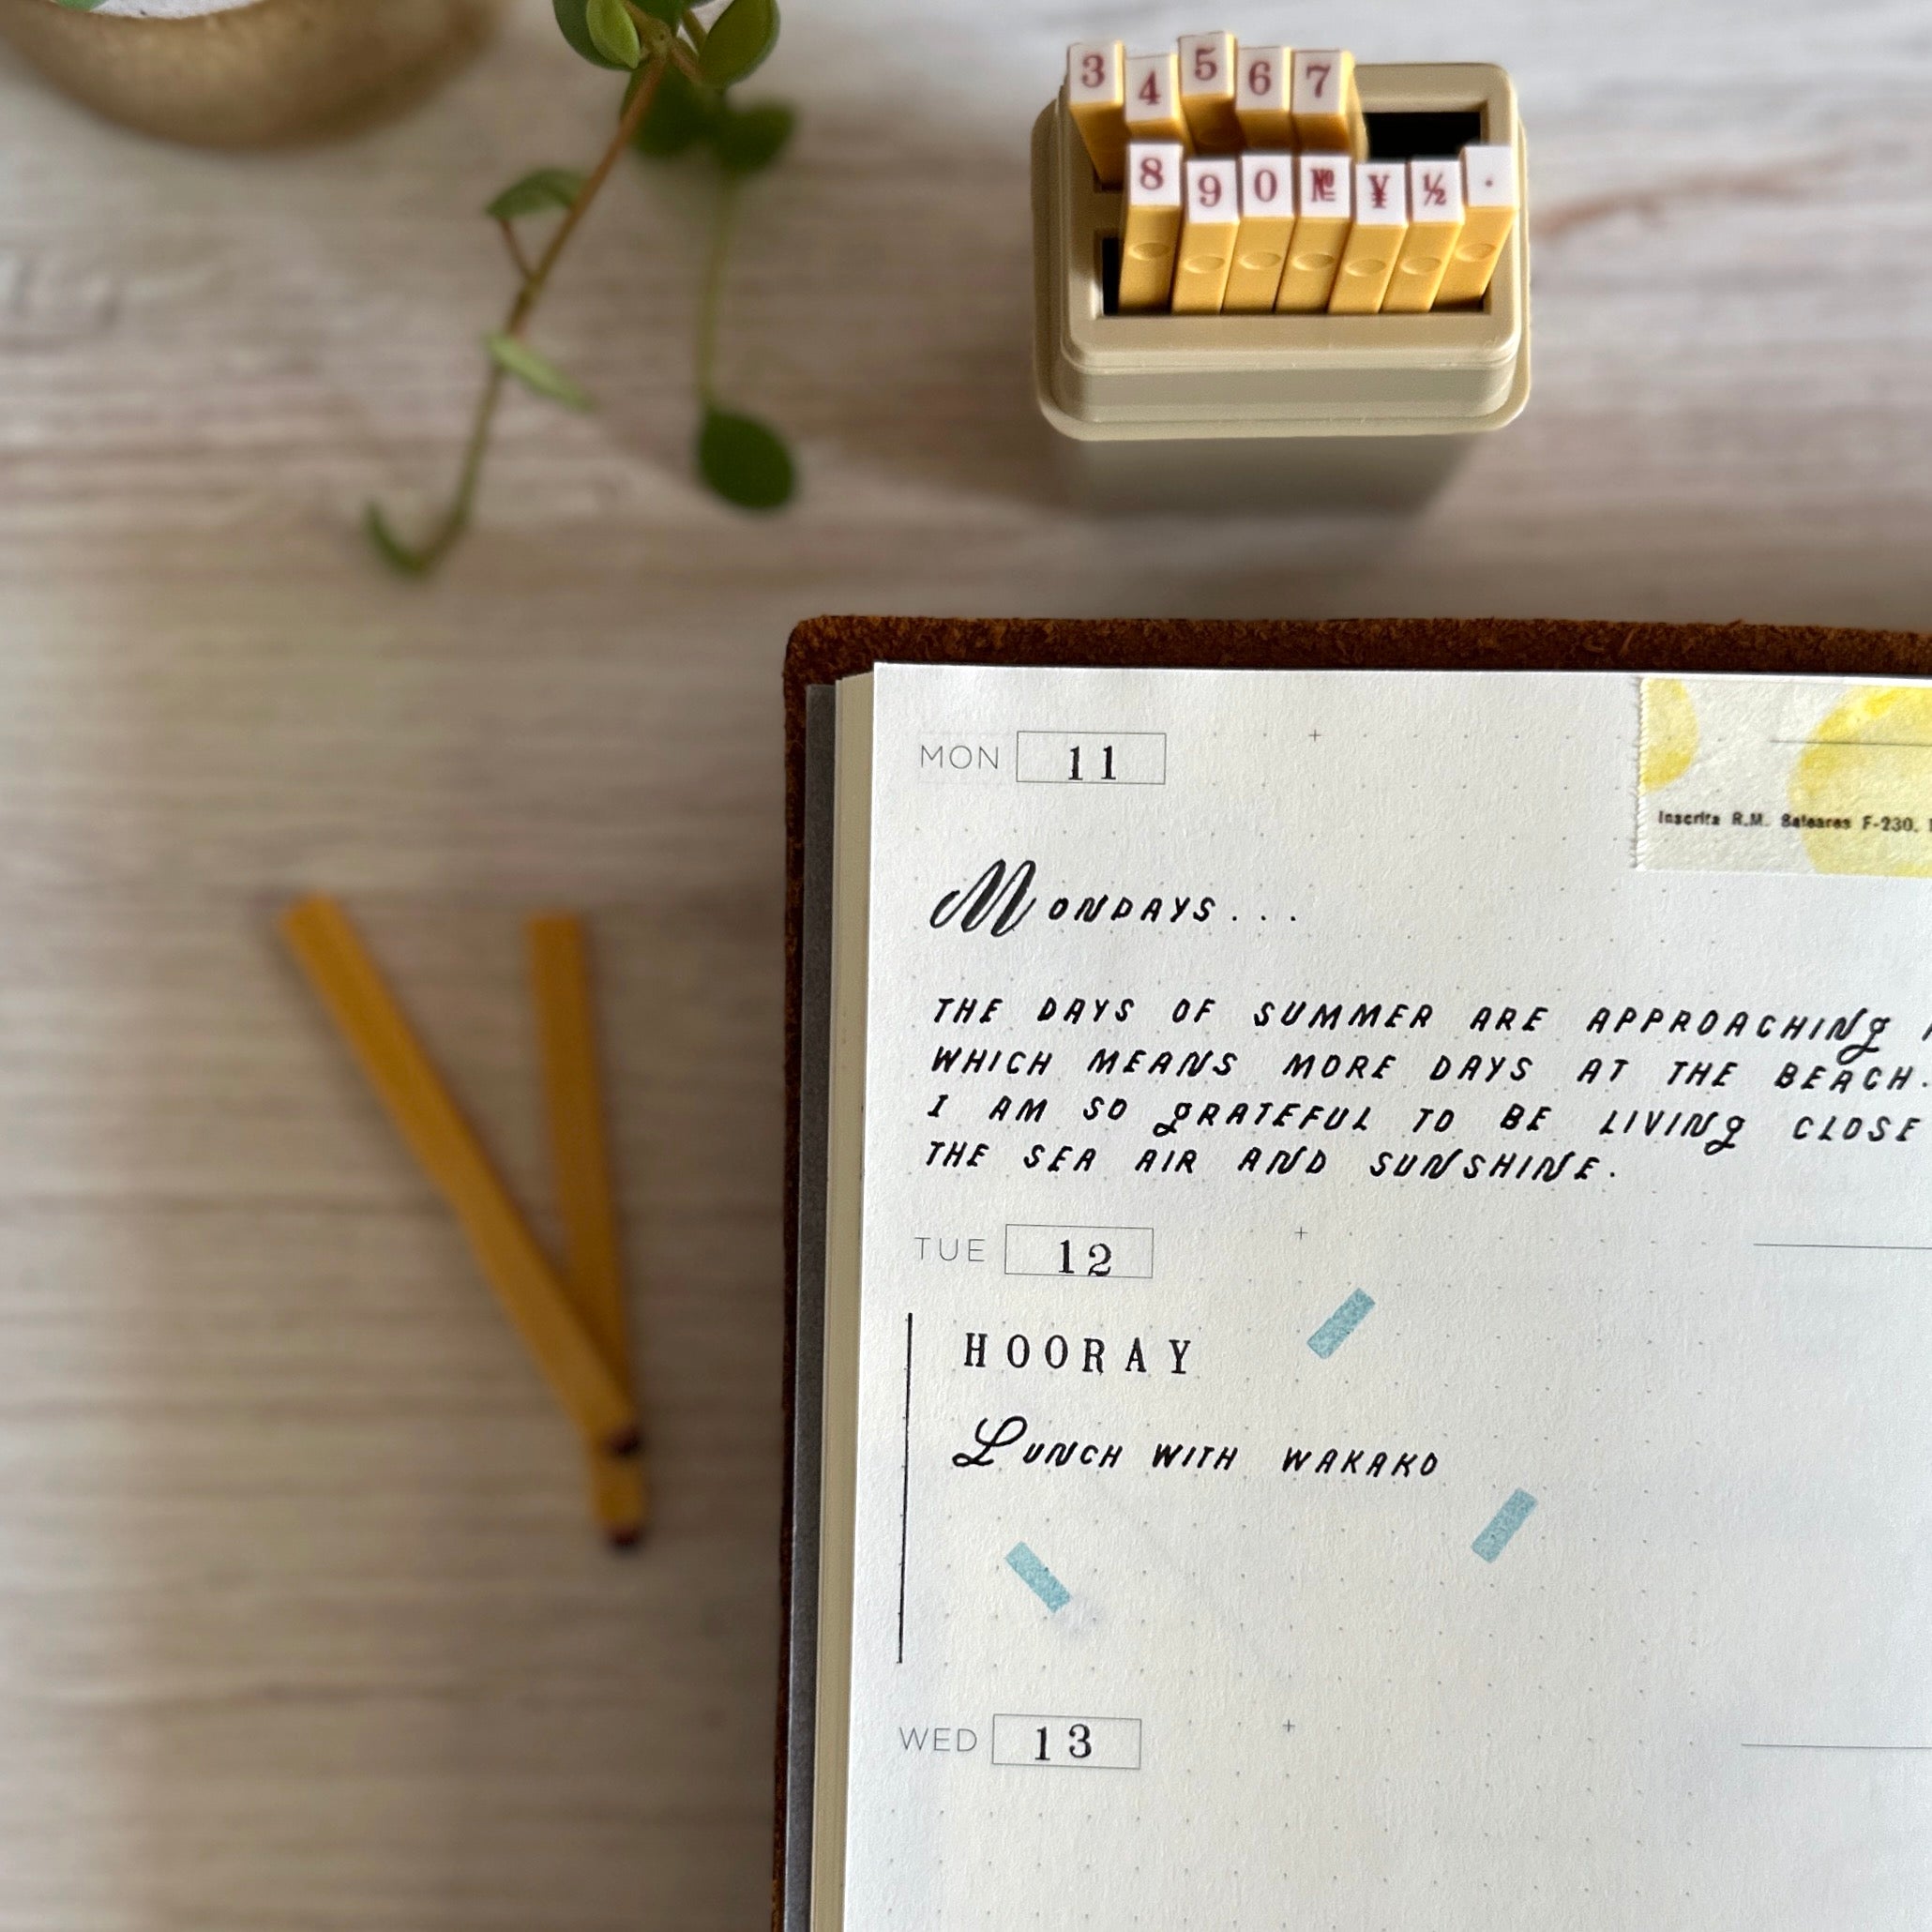 3 4 5 6 7
8 9 0 № ¥ ½ ·
MON 11
Inscrita R.M. Baleares F-230,
Mondays...
THE DAYS OF SUMMER ARE APPROACHING
WHICH MEANS MORE DAYS AT THE BEACH.
I AM SO GRATEFUL TO BE LIVING CLOSE
THE SEA AIR AND SUNSHINE.
TUE 12
HOORAY
LUNCH WITH WAKAKO
WED 13